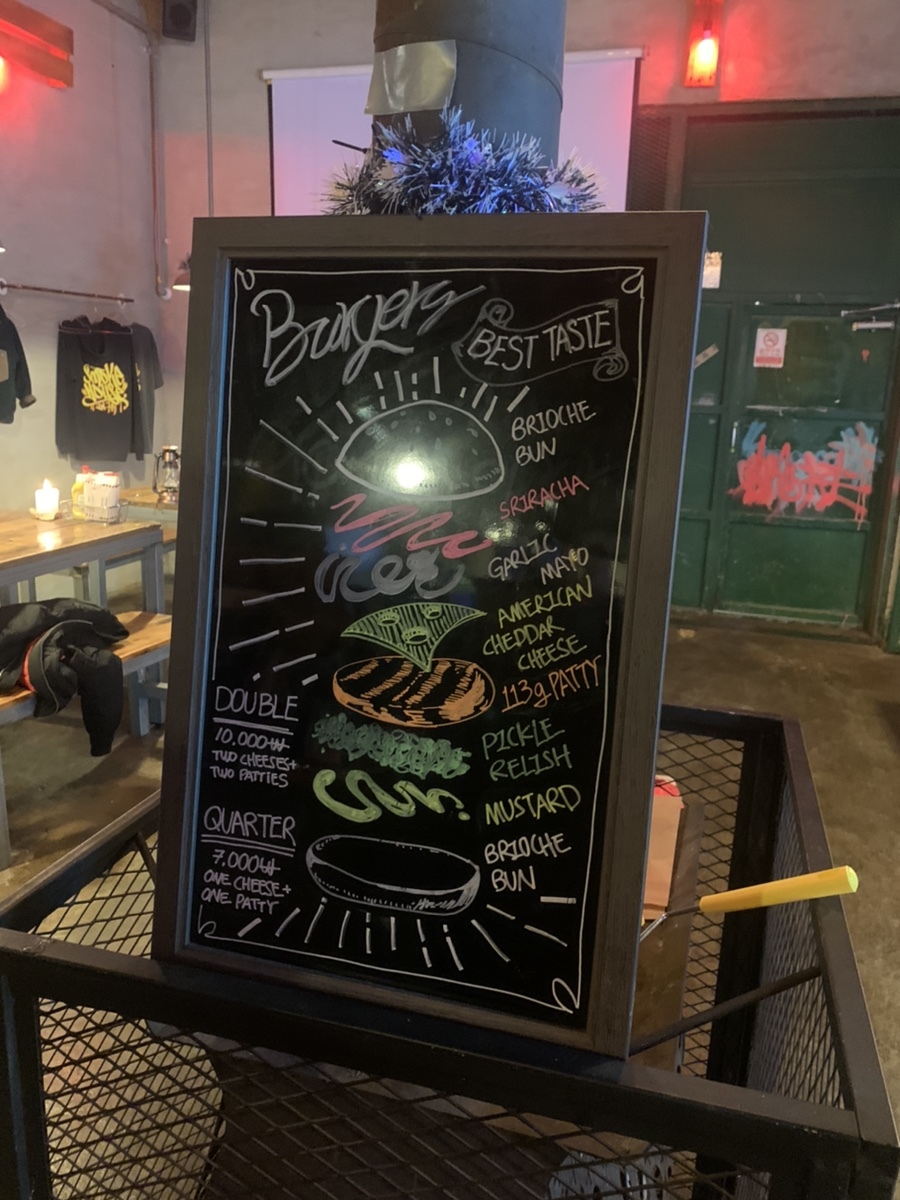 Burgers
BEST TASTE
BRIOCHE
BUN
SRIRACHA
GARLIC
MAYO
AMERICAN
CHEDDAR
CHEESE
113g PATTY
PICKLE
RELISH
MUSTARD
BRIOCHE
BUN
DOUBLE
10.000₩
TWO CHEESES+
TWO PATTIES
QUARTER
7.000₩
ONE CHEESE+
ONE PATTY